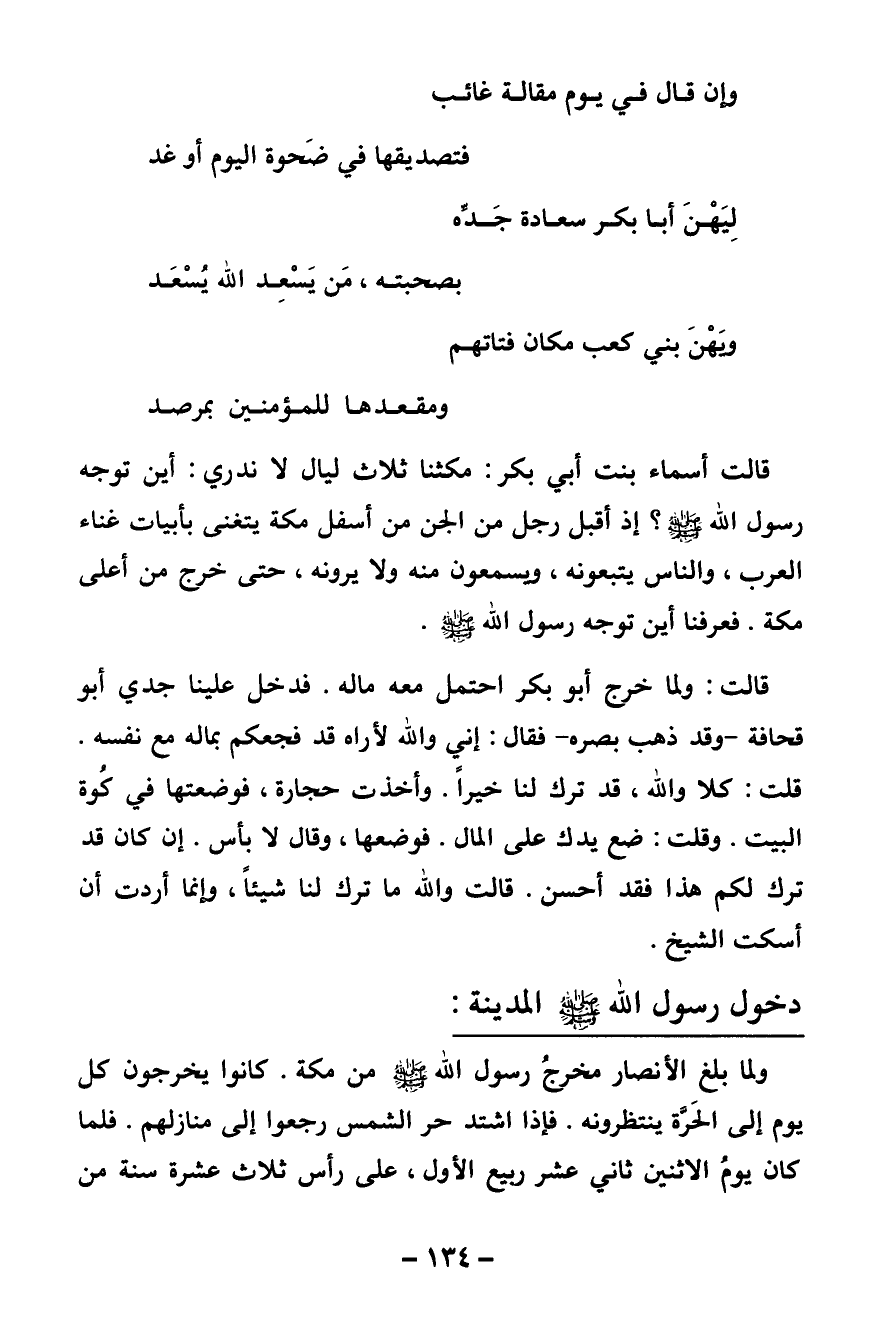 وإن قـال فـي يـوم مقالـة غائـب
فتصديقها في ضَحوة اليوم أو غد
لِيَهْـنَ أبـا بكـر سعـادة جَـدِّه
بصحبتـه ، مَن يَسْعِـد الله يُسْعَـد
ويَهْنَ بني كعب مكان فتاتهـم
ومقـعـدهـا للمـؤمنـين بمرصـد
قالت أسماء بنت أبي بكر : مكثنا ثلاث ليال لا ندري : أين توجه
رسول الله ﷺ ؟ إذ أقبل رجل من الجن من أسفل مكة يتغنى بأبيات غناء
العرب ، والناس يتبعونه ، ويسمعون منه ولا يرونه ، حتى خرج من أعلى
مكة . فعرفنا أين توجه رسول الله ﷺ .
قالت : ولما خرج أبو بكر احتمل معه ماله . فدخل علينا جدي أبو
قحافة –وقد ذهب بصره– فقال : إني والله لأراه قد فجعكم بماله مع نفسه .
قلت : كلا والله ، قد ترك لنا خيراً . وأخذت حجارة ، فوضعتها في كُوة
البيت . وقلت : ضع يدك على المال . فوضعها ، وقال لا بأس . إن كان قد
ترك لكم هذا فقد أحسن . قالت والله ما ترك لنا شيئاً ، وإنما أردت أن
أسكت الشيخ .
دخول رسول الله ﷺ المدينة :
ولما بلغ الأنصار مخرجُ رسول الله ﷺ من مكة . كانوا يخرجون كل
يوم إلى الحَرَّة ينتظرونه . فإذا اشتد حر الشمس رجعوا إلى منازلهم . فلما
كان يومُ الاثنين ثاني عشر ربيع الأول ، على رأس ثلاث عشرة سنة من
– ١٣٤ –